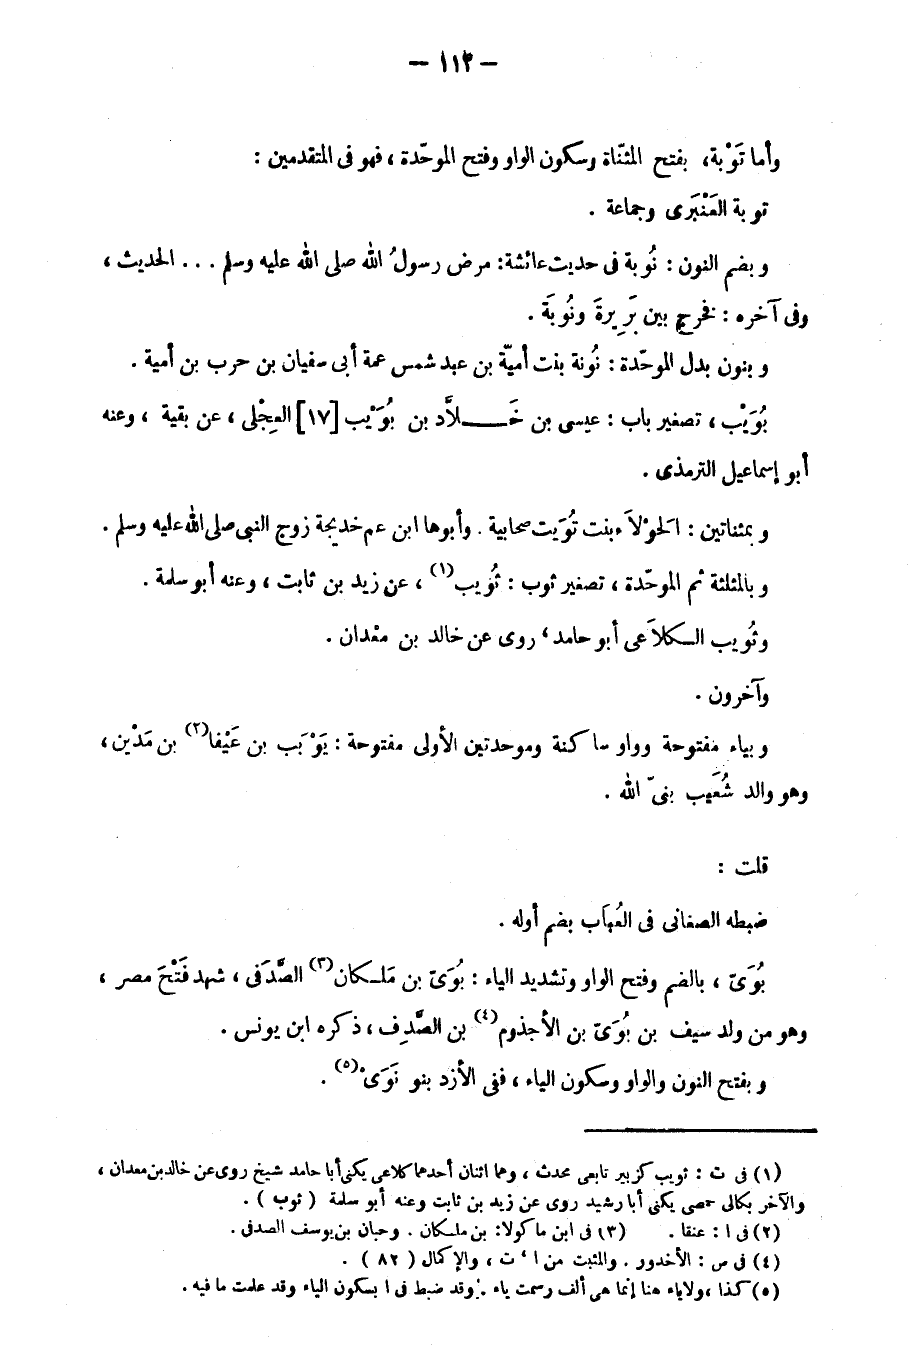 — ١١٣ —
وأما تَوْبة، بفتح المثنّاة وسكون الواو وفتح الموحّدة ، فهو فى المتقدمين :
توبة العَنْبَرى وجماعة .
وبضم النون : نُوبة فى حديث عائشة: مرض رسولُ الله صلى الله عليه وسلم ... الحديث ،
وفى آخره : فخرج بين بَرِيرةَ ونُوبَةَ .
وبنون بدل الموحّدة : نُونة بنت أميّة بن عبد شمس عمة أبى سفيان بن حرب بن أمية .
بُوَيْب ، تصغير باب : عيسى بن خَـــلاَّد بن بُوَيْب [١٧] العِجْلى ، عن بقية ، وعنه
أبو إسماعيل الترمذى .
وبمثناتين : الحَوْلاَء بنت تُوَيت صحابية . وأبوها ابن عم خديجة زوج النبى صلى الله عليه وسلم .
وبالمثلثة ثم الموحّدة ، تصغير ثوب : ثُوَيب(١) ، عن زيد بن ثابت ، وعنه أبو سلمة .
وثُوَيب الكلاَعى أبو حامد ، روى عن خالد بن معْدان .
وآخرون .
وبياء مفتوحة وواو ساكنة وموحدتين الأولى مفتوحة : يَوْبَب بن عَيْفا(٢) بن مَدْين،
وهو والد شُعَيب نبىّ الله .
قلت :
ضبطه الصغانى فى العُبَاب بضم أوله .
بُوَىّ ، بالضم وفتح الواو وتشديد الياء : بُوَىّ بن مَلـكان(٣) الصَّدَفى ، شهد فَتْحَ مصر ،
وهو من ولد سيف بن بُوَىّ بن الأجذوم(٤) بن الصَّدِف ، ذكره ابن يونس .
وبفتح النون والواو وسكون الياء ، ففى الأزد بنو نَوَىْ(٥) .
(١) فى ت : ثويب كزبير تابعى محدث ، وهما اثنان أحدهما كلاعى يكنى أبا حامد شيخ روى عن خالد بن معدان ،
والآخر بكالى حمصى يكنى أبا رشيد روى عن زيد بن ثابت وعنه أبو سلمة ( ثوب ) .
(٢) فى ا : عنقا . (٣) فى ابن ماكولا: بن ملـكان . وحبان بن يوسف الصدفى .
(٤) فى س : الأخدور . والمثبت من ا ، ت ، والإكمال ( ٨٢ ) .
(٥) كذا ، ولاياء هنا إنما هى ألف رسمت ياء . وقد ضبط فى ا بسكون الياء وقد علمت ما فيه .